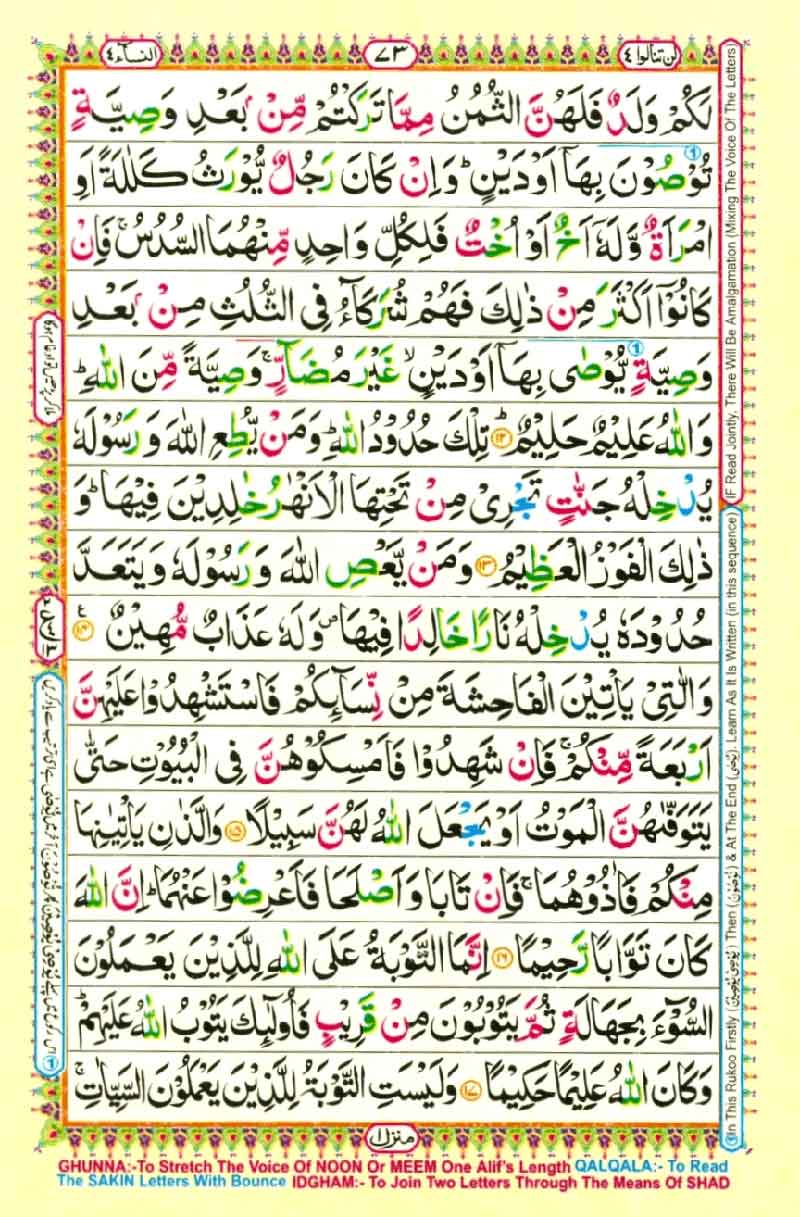 النسآء٤
٧٣
لن تنالوا٤
لَكُمْ وَلَدٌ فَلَهُنَّ الثُّمُنُ مِمَّا تَرَكْتُمْ مِّنْۢ بَعْدِ وَصِيَّةٍ
تُوْصُوْنَ بِهَاۤ اَوْ دَيْنٍ ؕ وَاِنْ كَانَ رَجُلٌ يُّوْرَثُ كَلٰلَةً اَوِ
امْرَاَةٌ وَّلَهٗۤ اَخٌ اَوْ اُخْتٌ فَلِكُلِّ وَاحِدٍ مِّنْهُمَا السُّدُسُ ۚ فَاِنْ
كَانُوْۤا اَكْثَرَ مِنْ ذٰلِكَ فَهُمْ شُرَكَآءُ فِى الثُّلُثِ مِنْۢ بَعْدِ
وَصِيَّةٍ يُّوْصٰى بِهَاۤ اَوْ دَيْنٍ ۙ غَيْرَ مُضَآرٍّ ۚ وَصِيَّةً مِّنَ اللّٰهِ ؕ
وَاللّٰهُ عَلِيْمٌ حَلِيْمٌ ؕ ﴿١٢﴾ تِلْكَ حُدُوْدُ اللّٰهِ ؕ وَمَنْ يُّطِعِ اللّٰهَ وَرَسُوْلَهٗ
يُدْخِلْهُ جَنّٰتٍ تَجْرِىْ مِنْ تَحْتِهَا الْاَنْهٰرُ خٰلِدِيْنَ فِيْهَا ؕ وَ
ذٰلِكَ الْفَوْزُ الْعَظِيْمُ ﴿١٣﴾ وَمَنْ يَّعْصِ اللّٰهَ وَرَسُوْلَهٗ وَيَتَعَدَّ
حُدُوْدَهٗ يُدْخِلْهُ نَارًا خَالِدًا فِيْهَا ۪ وَلَهٗ عَذَابٌ مُّهِيْنٌ ﴿١٤﴾ ع
وَالّٰتِىْ يَاْتِيْنَ الْفَاحِشَةَ مِنْ نِّسَآئِكُمْ فَاسْتَشْهِدُوْا عَلَيْهِنَّ
اَرْبَعَةً مِّنْكُمْ ۚ فَاِنْ شَهِدُوْا فَاَمْسِكُوْهُنَّ فِى الْبُيُوْتِ حَتّٰى
يَتَوَفّٰهُنَّ الْمَوْتُ اَوْ يَجْعَلَ اللّٰهُ لَهُنَّ سَبِيْلًا ﴿١٥﴾ وَالَّذٰنِ يَاْتِيٰنِهَا
مِنْكُمْ فَاٰذُوْهُمَا ۚ فَاِنْ تَابَا وَاَصْلَحَا فَاَعْرِضُوْا عَنْهُمَا ؕ اِنَّ اللّٰهَ
كَانَ تَوَّابًا رَّحِيْمًا ﴿١٦﴾ اِنَّمَا التَّوْبَةُ عَلَى اللّٰهِ لِلَّذِيْنَ يَعْمَلُوْنَ
السُّوْٓءَ بِجَهَالَةٍ ثُمَّ يَتُوْبُوْنَ مِنْ قَرِيْبٍ فَاُولٰٓئِكَ يَتُوْبُ اللّٰهُ عَلَيْهِمْ ؕ
وَكَانَ اللّٰهُ عَلِيْمًا حَكِيْمًا ﴿١٧﴾ وَلَيْسَتِ التَّوْبَةُ لِلَّذِيْنَ يَعْمَلُوْنَ السَّيِّاٰتِ ۚ
منزل١
GHUNNA:-To Stretch The Voice Of NOON Or MEEM One Alif's Length QALQALA:- To Read
The SAKIN Letters With Bounce IDGHAM:- To Join Two Letters Through The Means Of SHAD
①In This Rukoo Firstly (يُوْصِىْ يُوْصِيْنَ) Then (تُوْصُوْنَ) & At The End (يُوْصٰى). Learn As It Is Written (in this sequence)
IF Read Jointly, There Will Be Amalgamation (Mixing The Voice Of The Letters